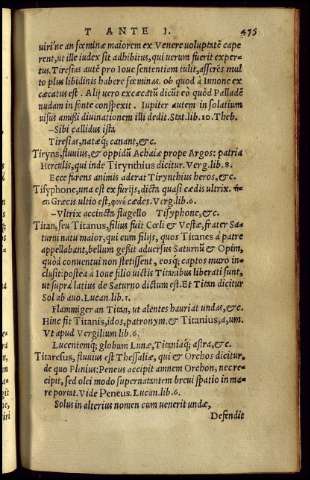 T ANTE I. 475
uiri'ne an fœminæ maiorem ex Venere uoluptatẽ cape
rent, ut ille iudex sit adhibitus, qui utrum fuerit exper-
tus. Tiresias autẽ pro Ioue sententiam tulit, asserẽs mul
to plus libidinis habere fœminas. ob quod à Iunone ex
cæcatus est. Alij uero excæcatũ dicũt eò quòd Palladẽ
nudam in fonte conspexit. Iupiter autem in solatium
uisus amissi diuinationem illi dedit. Stat. lib. 10. Theb.
–Sibi callidus ista
Tiresias, natæq; canant, &c.
Tiryns, fluuius, & oppidũ Achaiæ prope Argos: patria
Herculi, qui inde Tirynthius dicitur. Verg. lib. 8.
Ecce furens animis aderat Tirynthius heros, &c.
Tisyphone, una est ex furijs, dicta quasi cædis ultrix.
Græcis ultio est, cædes. Verg. lib. 6.
–Vltrix accincta flagello Tisyphone, &c.
Titan, seu Titanus, filius fuit Cœli & Vestæ, frater Sa-
turni natu maior, qui cum filijs, quos Titanes à patre
appellabant, bellum gessit aduersus Saturnũ & Opin,
quòd conuentui non stetissent, eosq; captos muro in-
clusit: postea à Ioue filio uictis Titanibus liberati sunt,
ut supra latius de Saturno dictum est. Et Titan dicitur
Sol ab auo. Lucan. lib. 1.
Flammiger an Titan, ut alentes hauriat undas, &c.
Hinc fit Titanis, idos, patronym. & Titanius, a, um.
Vt apud Vergilium lib. 6.
Lucentemq; globum Lunæ, Titaniaq; astra, &c.
Titaresus, fluuius est Thessaliæ, qui & Orchos dicitur,
de quo Plinius: Peneus accipit amnem Orchon, nec re-
cipit, sed olei modo supernatantem breui spatio in mo-
re portat. Vide Peneus. Lucan. lib. 6.
Solus in alterius nomen cum uenerit undæ,
Defendit